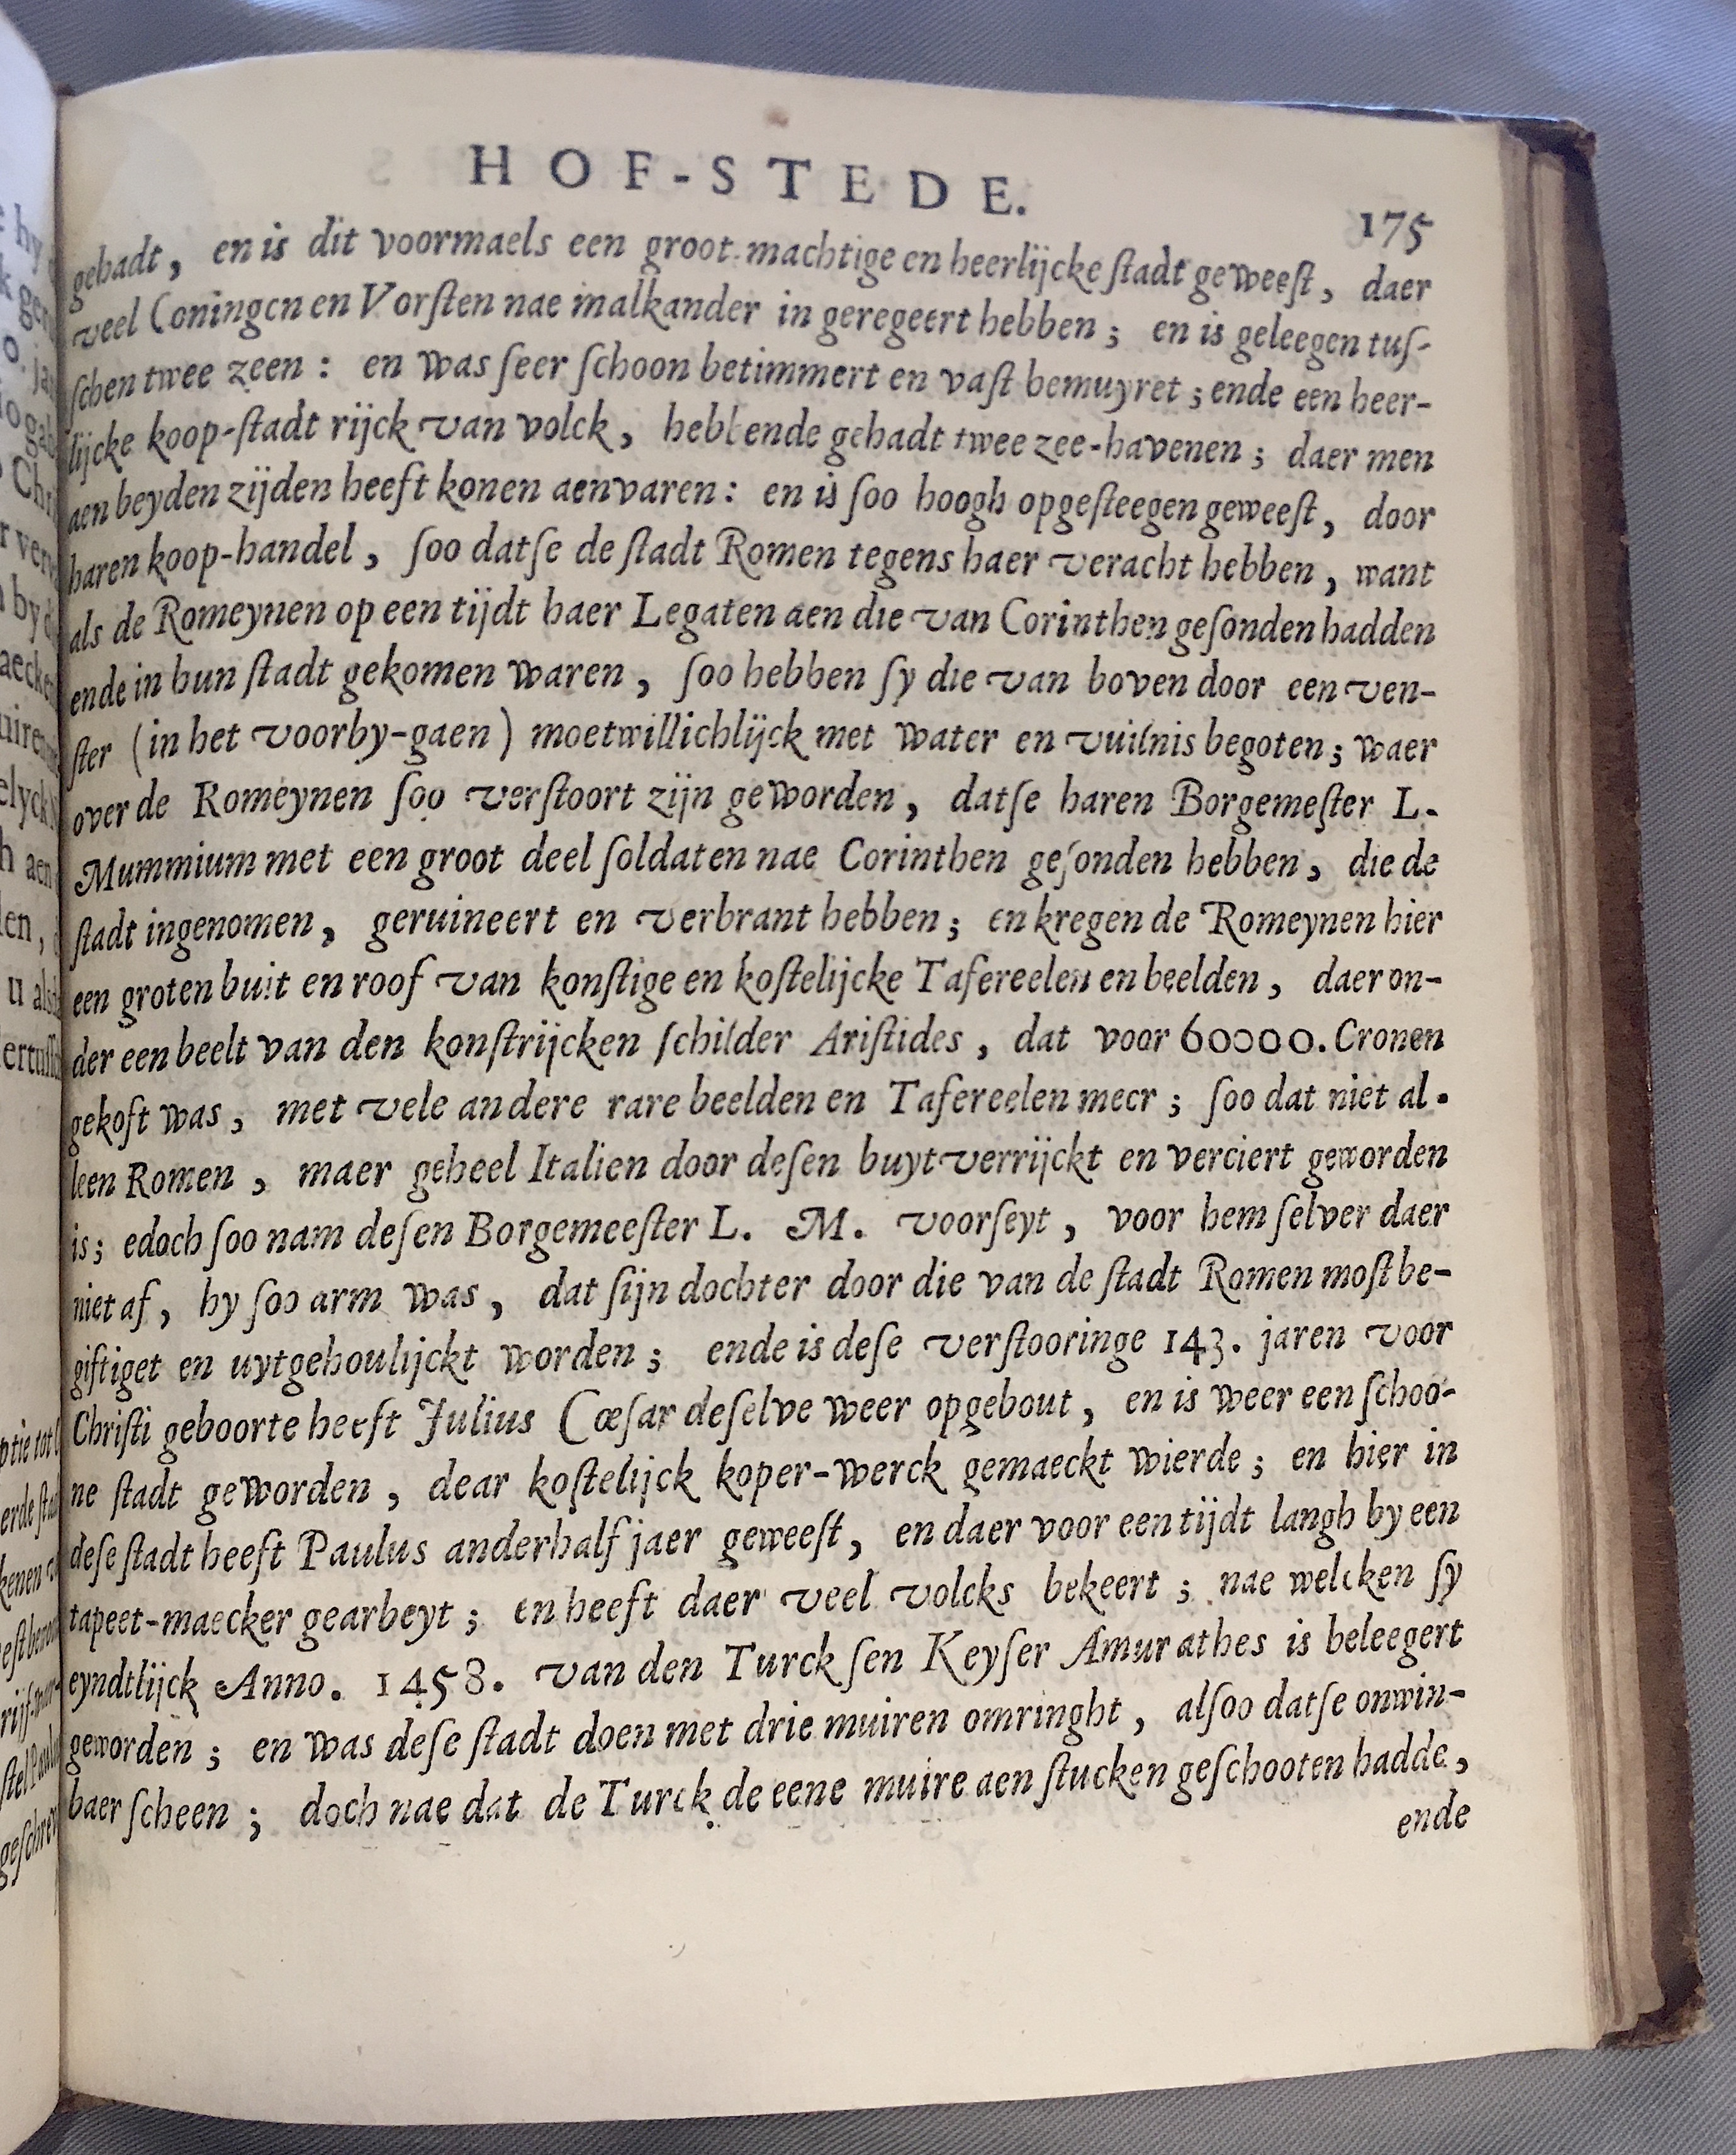 HOF-STEDE.
175
gehadt, en is dit voormaels een groot machtige en heerlijcke ſtadt geweeſt, daer
veel Coningen en Vorſten nae malkander in geregeert hebben; en is geleegen tuſ-
ſchen twee zeen: en was ſeer ſchoon betimmert en vaſt bemuyret; ende een heer-
lijcke koop-ſtadt rijck van volck, hebbende gehadt twee zee-havenen; daer men
aen beyden zijden heeft konen aenvaren: en is ſoo hoogh opgeſteegen geweeſt, door
haren koop-handel, ſoo datſe de ſtadt Romen tegens haer veracht hebben, want
als de Romeynen op een tijdt haer Legaten aen die van Corinthen geſonden hadden
ende in hun ſtadt gekomen waren, ſoo hebben ſy die van boven door een ven-
ſter (in het voorby-gaen) moetwillichlijck met water en vuilnis begoten; waer
over de Romeynen ſoo verſtoort zijn geworden, datſe haren Borgemeſter L.
Mummium met een groot deel ſoldaten nae Corinthen geſonden hebben, die de
ſtadt ingenomen, geruineert en verbrant hebben; en kregen de Romeynen hier
een groten buit en roof van konſtige en koſtelijcke Tafereelen en beelden, daer on-
der een beelt van den konſtrijcken ſchilder Ariſtides, dat voor 60000. Cronen
gekoft was, met vele andere rare beelden en Tafereelen meer; ſoo dat niet al-
leen Romen, maer geheel Italien door deſen buyt verrijckt en verciert geworden
is; edoch ſoo nam deſen Borgemeeſter L. M. voorſeyt, voor hem ſelver daer
niet af, hy ſoo arm was, dat ſijn dochter door die van de ſtadt Romen moſt be-
giftiget en uytgehoulijckt worden; ende is deſe verſtooringe 143. jaren voor
Chriſti geboorte heeft Julius Cæſar deſelve weer opgebout, en is weer een ſchoo-
ne ſtadt geworden, dear koſtelijck koper-werck gemaeckt wierde; en hier in
deſe ſtadt heeft Paulus anderhalf jaer geweeſt, en daer voor een tijdt langh by een
tapeet-maecker gearbeyt; en heeft daer veel volcks bekeert; nae welcken ſy
eyndtlijck Anno. 1458. van den Turckſen Keyſer Amurathes is beleegert
geworden; en was deſe ſtadt doen met drie muiren omringht, alſoo datſe onwin-
baer ſcheen; doch nae dat de Turck de eene muire aen ſtucken geſchooten hadde,
ende